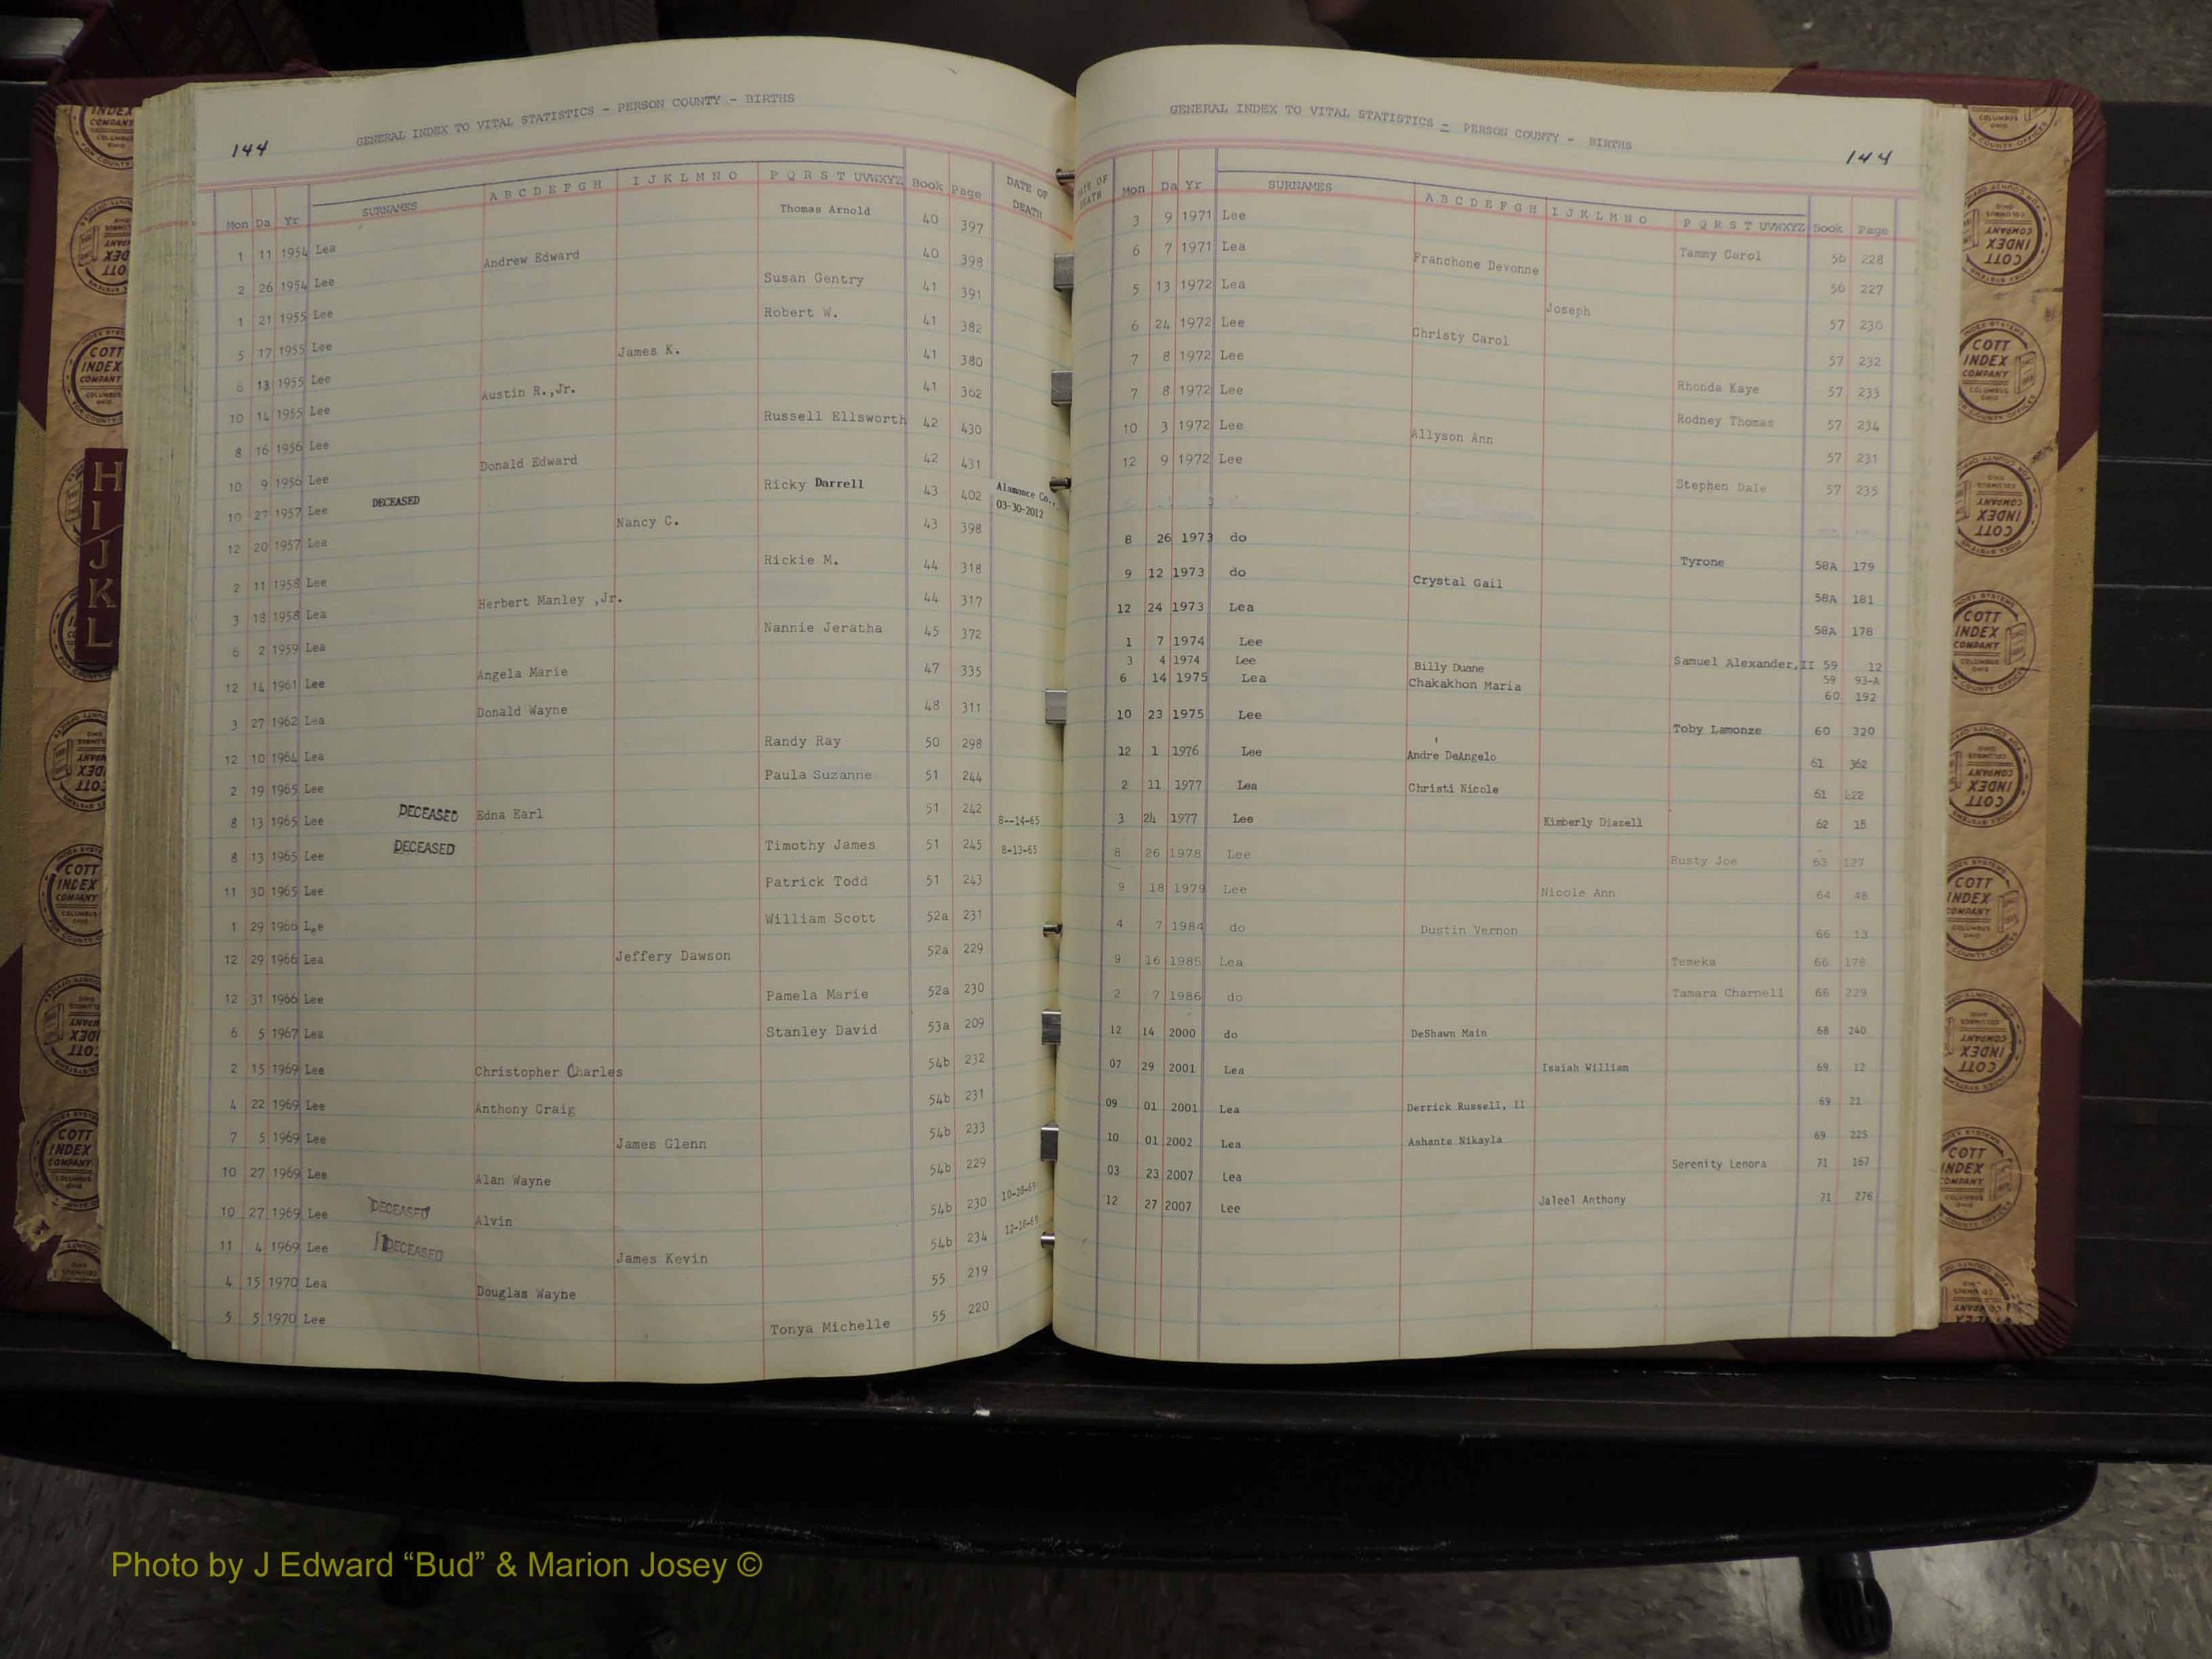 144
GENERAL INDEX TO VITAL STATISTICS - PERSON COUNTY - BIRTHS
Mon Da Yr SURNAMES A B C D E F G H I J K L M N O P Q R S T UVWXYZ Book Page DATE OF DEATH
1 11 1954 Lea Thomas Arnold 40 397
2 26 1954 Lee Andrew Edward 40 398
1 21 1955 Lee Susan Gentry 41 391
5 17 1955 Lee Robert W. 41 382
6 13 1955 Lee James K. 41 380
10 14 1955 Lee Austin R.,Jr. 41 362
8 16 1956 Lee Russell Ellsworth 42 430
10 9 1956 Lee Donald Edward 42 431
10 27 1957 Lee DECEASED Ricky Darrell 43 402 Alamance Co., 03-30-2012
12 20 1957 Lea Nancy C. 43 398
2 11 1958 Lee Rickie M. 44 318
3 18 1958 Lea Herbert Manley ,Jr. 44 317
6 2 1959 Lea Nannie Jeratha 45 372
12 14 1961 Lee Angela Marie 47 335
3 27 1962 Lea Donald Wayne 48 311
12 10 1964 Lea Randy Ray 50 298
2 19 1965 Lee Paula Suzanne 51 244
8 13 1965 Lee DECEASED Edna Earl 51 242 8--14-65
8 13 1965 Lee DECEASED Timothy James 51 245 8-13-65
11 30 1965 Lee Patrick Todd 51 243
1 29 1966 Lee William Scott 52a 231
12 29 1966 Lea Jeffery Dawson 52a 229
12 31 1966 Lee Pamela Marie 52a 230
6 5 1967 Lea Stanley David 53a 209
2 15 1969 Lea Christopher Charles 54b 232
4 22 1969 Lee Anthony Craig 54b 231
7 5 1969 Lee James Glenn 54b 233
10 27 1969 Lee Alan Wayne 54b 229
10 27 1969 Lee DECEASED Alvin 54b 230 10-28-69
11 4 1969 Lee DECEASED James Kevin 54b 234 12-18-69
4 15 1970 Lea Douglas Wayne 55 219
5 5 1970 Lee Tonya Michelle 55 220
144
GENERAL INDEX TO VITAL STATISTICS - PERSON COUNTY - BIRTHS
DATE OF DEATH Mon Da Yr SURNAMES A B C D E F G H I J K L M N O P Q R S T UVWXYZ Book Page
3 9 1971 Lee Tammy Carol 56 228
6 7 1971 Lea Franchone Devonne 56 227
5 13 1972 Lea Joseph 57 230
6 24 1972 Lee Christy Carol 57 232
7 8 1972 Lee Rhonda Kaye 57 233
7 8 1972 Lee Rodney Thomas 57 234
10 3 1972 Lee Allyson Ann 57 231
12 9 1972 Lee Stephen Dale 57 235
8 26 1973 do Tyrone 58A 179
9 12 1973 do Crystal Gail 58A 181
12 24 1973 Lea 58A 178
1 7 1974 Lee Samuel Alexander,II 59 12
3 4 1974 Lee Billy Duane 59 93-A
6 14 1975 Lea Chakakhon Maria 60 192
10 23 1975 Lee Toby Lamonze 60 320
12 1 1976 Lee Andre DeAngelo 61 362
2 11 1977 Lea Christi Nicole 61 422
3 24 1977 Lee Kimberly Diazell 62 18
8 26 1978 Lee Rusty Joe 63 127
9 18 1979 Lee Nicole Ann 64 48
4 7 1984 do Dustin Vernon 66 13
9 16 1985 Lea Temeka 66 178
2 7 1986 do Tamara Charnell 66 229
12 14 2000 do DeShawn Main 68 240
07 29 2001 Lea Isaiah William 69 12
09 01 2001 Lea Derrick Russell, II 69 21
10 01 2002 Lea Ashante Nikayla 69 225
03 23 2007 Lea Serenity Lenora 71 167
12 27 2007 Lee Jaleel Anthony 71 276
H I J K L
COTT INDEX COMPANY COLUMBUS OHIO
INDEX SYSTEMS FOR COUNTY OFFICES
Photo by J Edward “Bud” & Marion Josey ©